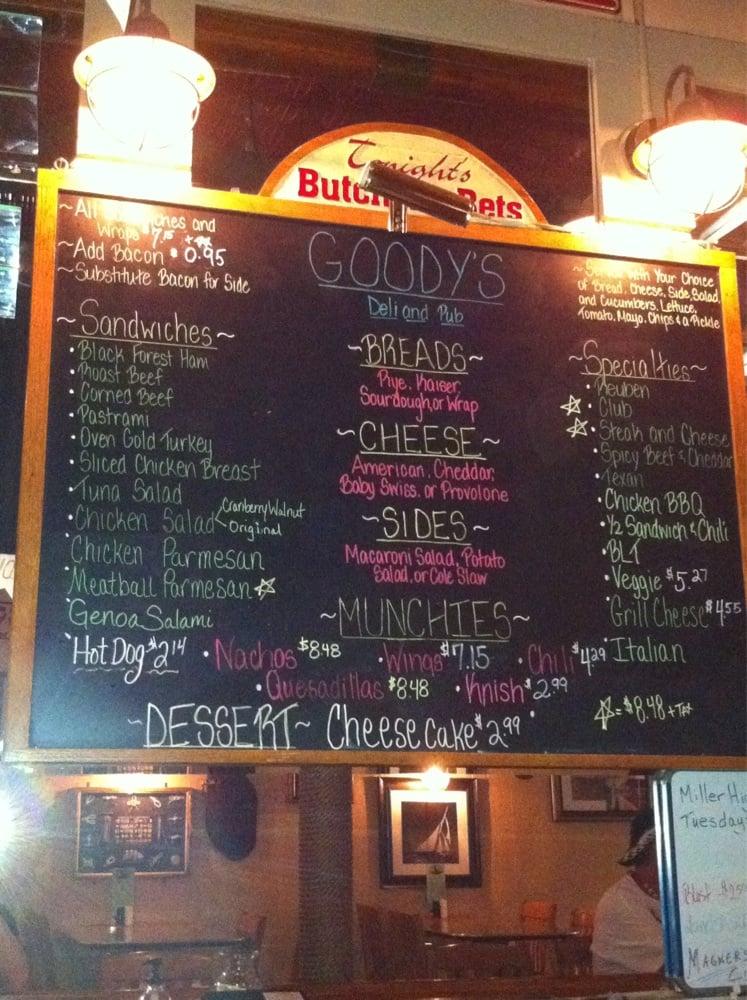 Tonight's
Bets
~All and
Wraps 7.15 + tax
~Add Bacon $0.95
~Substitute Bacon for Side
GOODY'S
Deli and Pub
with Your Choice
of Bread, Cheese, Side, Salad,
and Cucumbers, Lettuce,
Tomato, Mayo, Chips & a Pickle
~Sandwiches~
• Black Forest Ham
• Roast Beef
• Corned Beef
• Pastrami
• Oven Gold Turkey
• Sliced Chicken Breast
• Tuna Salad
• Chicken Salad < Cranberry Walnut
Original
• Chicken Parmesan
• Meatball Parmesan ☆
• Genoa Salami
• Hot Dog $2.14
~BREADS~
Rye, Kaiser,
Sourdough, or Wrap
~CHEESE~
American, Cheddar,
Baby Swiss, or Provolone
~SIDES~
Macaroni Salad, Potato
Salad, or Cole Slaw
~Specialties~
• Reuben
☆ • Club
☆ • Steak and Cheese
• Spicy Beef & Cheddar
• Texan
• Chicken BBQ
• ½ Sandwich & Chili
• BLT
• Veggie $5.27
• Grill Cheese $4.55
• Italian
☆ = $8.48 + Tax
~MUNCHIES~
• Nachos $8.48 • Wings $7.15 • Chili $4.29
• Quesadillas $8.48 • Knish $2.99
~DESSERT~ Cheese cake $2.99
Miller
Tuesday
MAGNERS